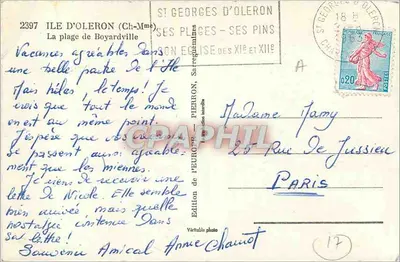 2397 ILE D'OLERON (Ch-Mme)
La plage de Boyardville
ST GEORGES D'OLERON
SES PLAGES - SES PINS
SON EGLISE DES XIe et XIIe
ST GEORGES D'OLERON
18 H
0,20
A
Vacances agréables dans
une belle partie de l'Ile
Mais hélas, le temps! Je
crois que tout le monde
en est au même point.
J'espère que vos vacances
se passent aussi agréable-
ment que les miennes.
Je viens de recevoir une
lettre de Nicole. Elle semble
bien arrivée, mais quelle
nostalgie contenue dans
sa lettre!
Souvenir Amical Annie Chauvot
Edition de l'EUROPE PIERRON, Sarreguemines
Véritable photo
CPAPHIL
Madame Mamy
25 Rue de Jussieu
PARIS
17